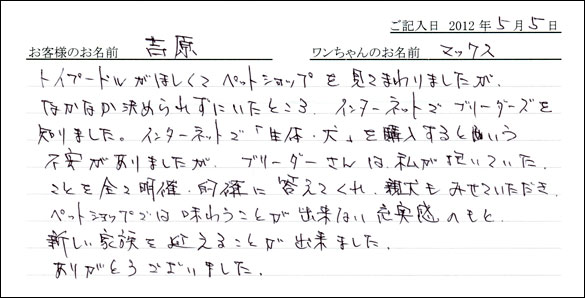 ご記入日 2012年5月5日
お客様のお名前 吉原 ワンちゃんのお名前 マックス
トイプードルがほしくてペットショップを見てまわりましたが、
なかなか決められずにいたところ、インターネットでブリーダーズを
知りました。インターネットで「生体・犬」を購入するという
不安がありましたが、ブリーダーさんは、私が抱いていた
ことを全て明確・的確に答えてくれ、親犬もみせていただき、
ペットショップでは味わうことが出来ない充実感のもと、
新しい家族を迎えることが出来ました。
ありがとうございました。